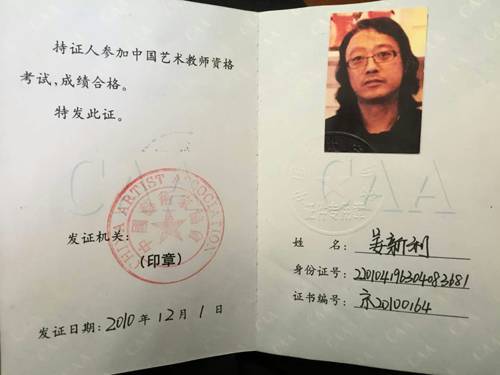 持证人参加中国艺术教师资格
考试,成绩合格。
特发此证。
CAA
CHINA ARTIST ASSOCIATION
发证机关:
(印章)
发证日期: 2010 年 12 月 1 日
CAA
姓 名: 姜新利
身份证号: 220104196304083681
证书编号: 京20100164